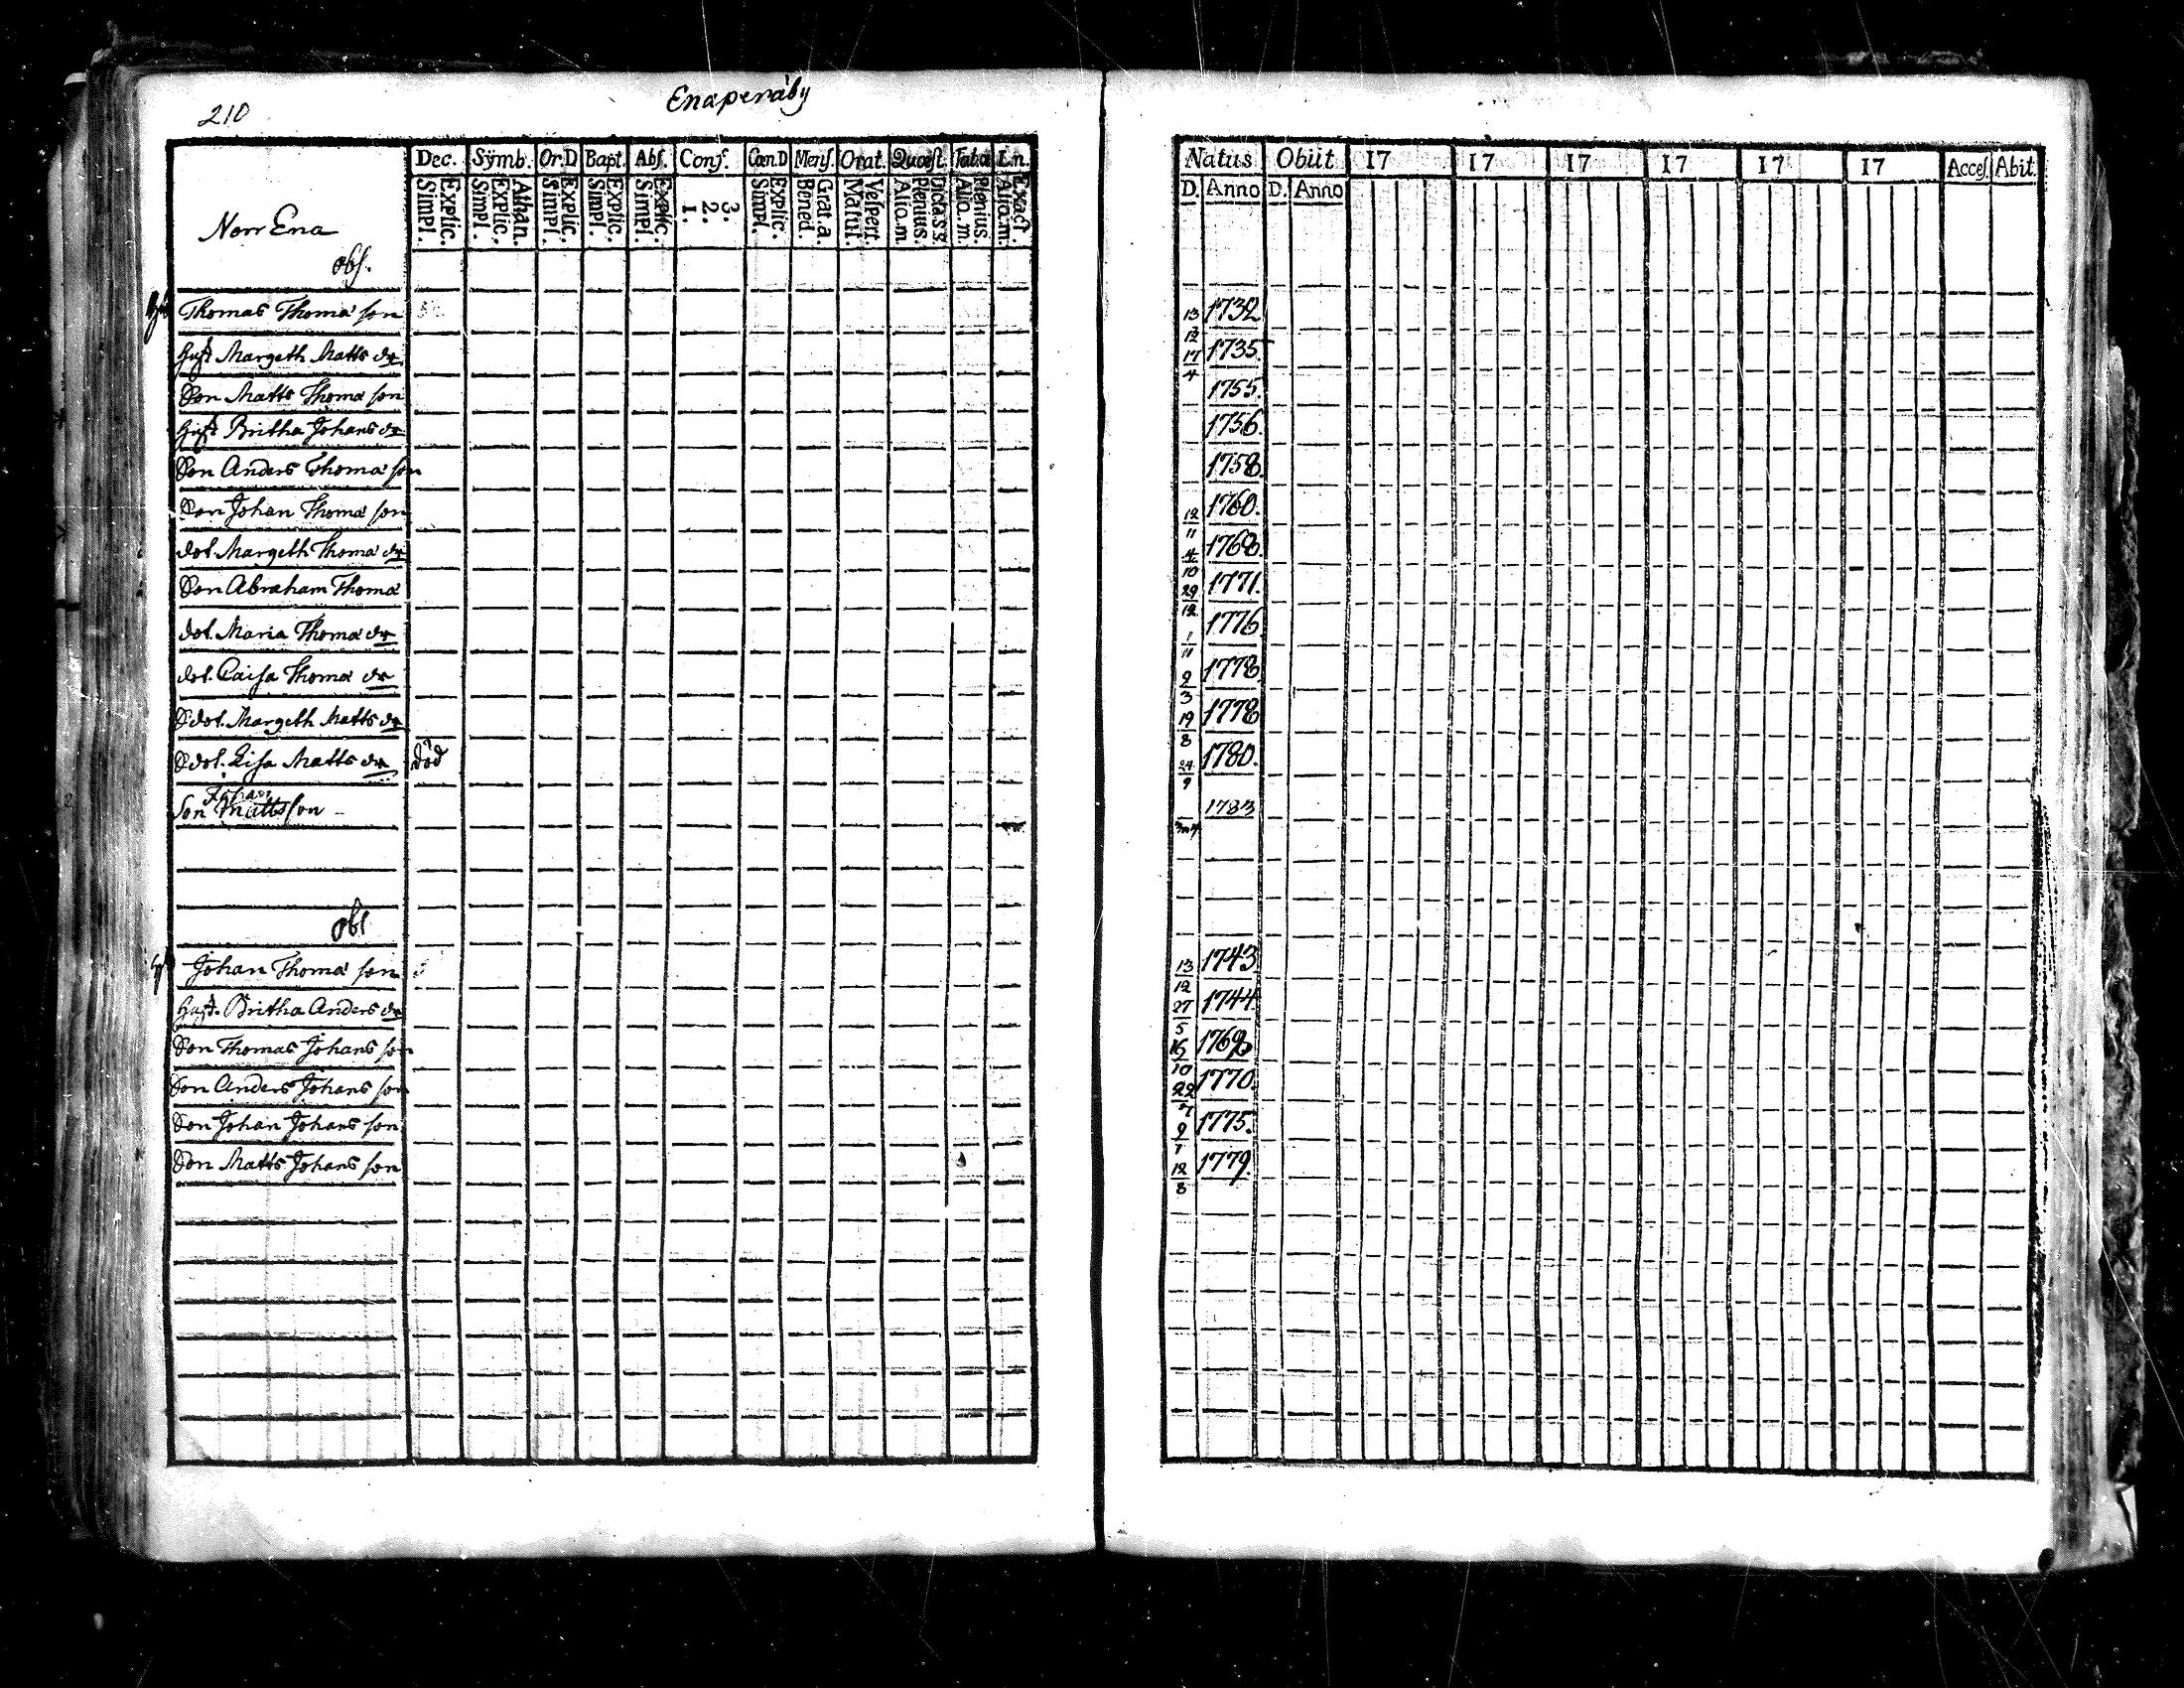 210
Enaperäby
Dec. Symb. Or.D Bapt. Abs. Conf. Cœn.D Mens. Orat. Quæst. Taba Ln.
Explic. Simpl. Athan. Explic. Simpl. Explic. Simpl. Explic. Simpl. Explic. Simpl. 3. 2. 1. Explic. Simpl. Grat.a. Bened. Vespert. Matut. Dica.s.s. Plenius. Aliq.m. Plenius. Aliq.m. Exact. Aliq.m.
Norr Ena
obs.
Thomas Thoma son
Hust Margeth Matts dr
Son Matts Thoma son
Hust Britha Johans dr
Son Anders Thoma son
Son Johan Thoma son
dot. Margeth Thoma dr
Son Abraham Thoma
dot. Maria Thoma dr
dot. Caisa Thoma dr
Sdot. Margeth Matts dr
Sdot. Lisa Matts dr död
Johan
Son Mattsson
obs
Johan Thoma son
Hust. Britha Anders dr
Son Thomas Johans son
Son Anders Johans son
Son Johan Johans son
Son Matts Johans son
Natus Obiit 17 17 17 17 17 17 Acces. Abit.
D. Anno D. Anno
13/12 1732
17/4 1735.
1755.
1756.
1758.
12/11 1760.
4/10 1768.
29/12 1771.
1/11 1776.
9/3 1778
19/8 1778
24/9 1780.
1783
13/12 1743
27/5 1744
16/10 1768
22/7 1770.
9/7 1775.
12/8 1779.